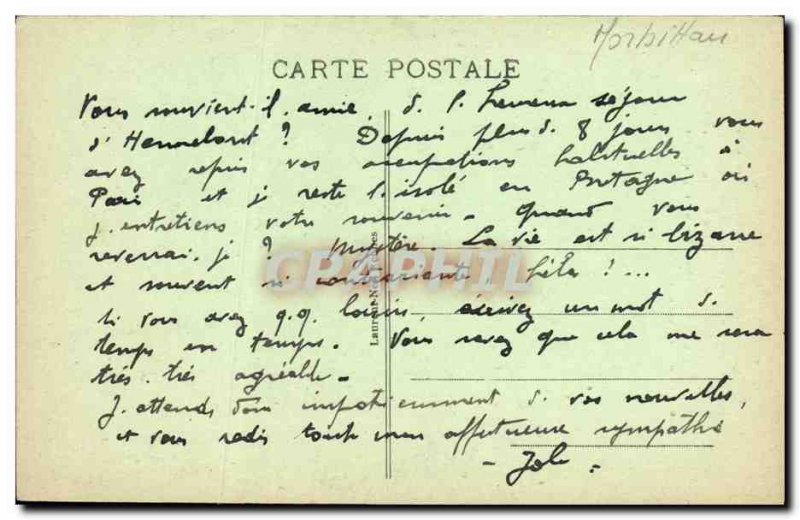 Morbihan
CARTE POSTALE
Vous souvient-il, amie, d. l. heureux séjour
d'Hennebont ? Depuis plus d. 8 jours vous
avez repris vos occupations habituelles à
Paris et j. reste l'isolé en Bretagne où
j. entretiens votre souvenir. Quand vous
reverrai-je ? Mystère. La vie est si bizarre
et souvent si contrariante, hélas !...
Si vous avez q.q. loisirs, écrivez un mot d.
temps en temps. Vous savez que cela me sera
très-très agréable.
J. attends donc impatiemment d. vos nouvelles,
et vous redis toute mon affectueuse sympathie
CPAPHIL
Laurent-Nel Rennes